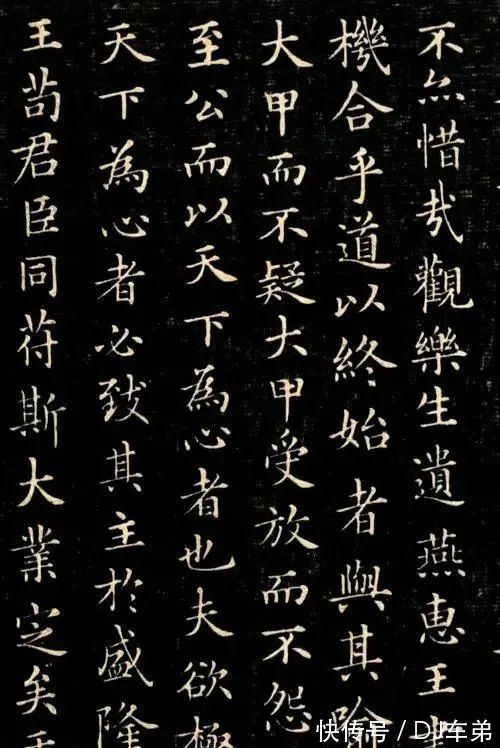 不亦惜哉觀樂生遺燕惠王書
機合乎道以終始者與其喻
大甲而不疑大甲受放而不怨
至公而以天下為心者也夫欲極
天下為心者必致其主於盛隆
王苟君臣同苻斯大業定矣
快传号 / DJ车弟